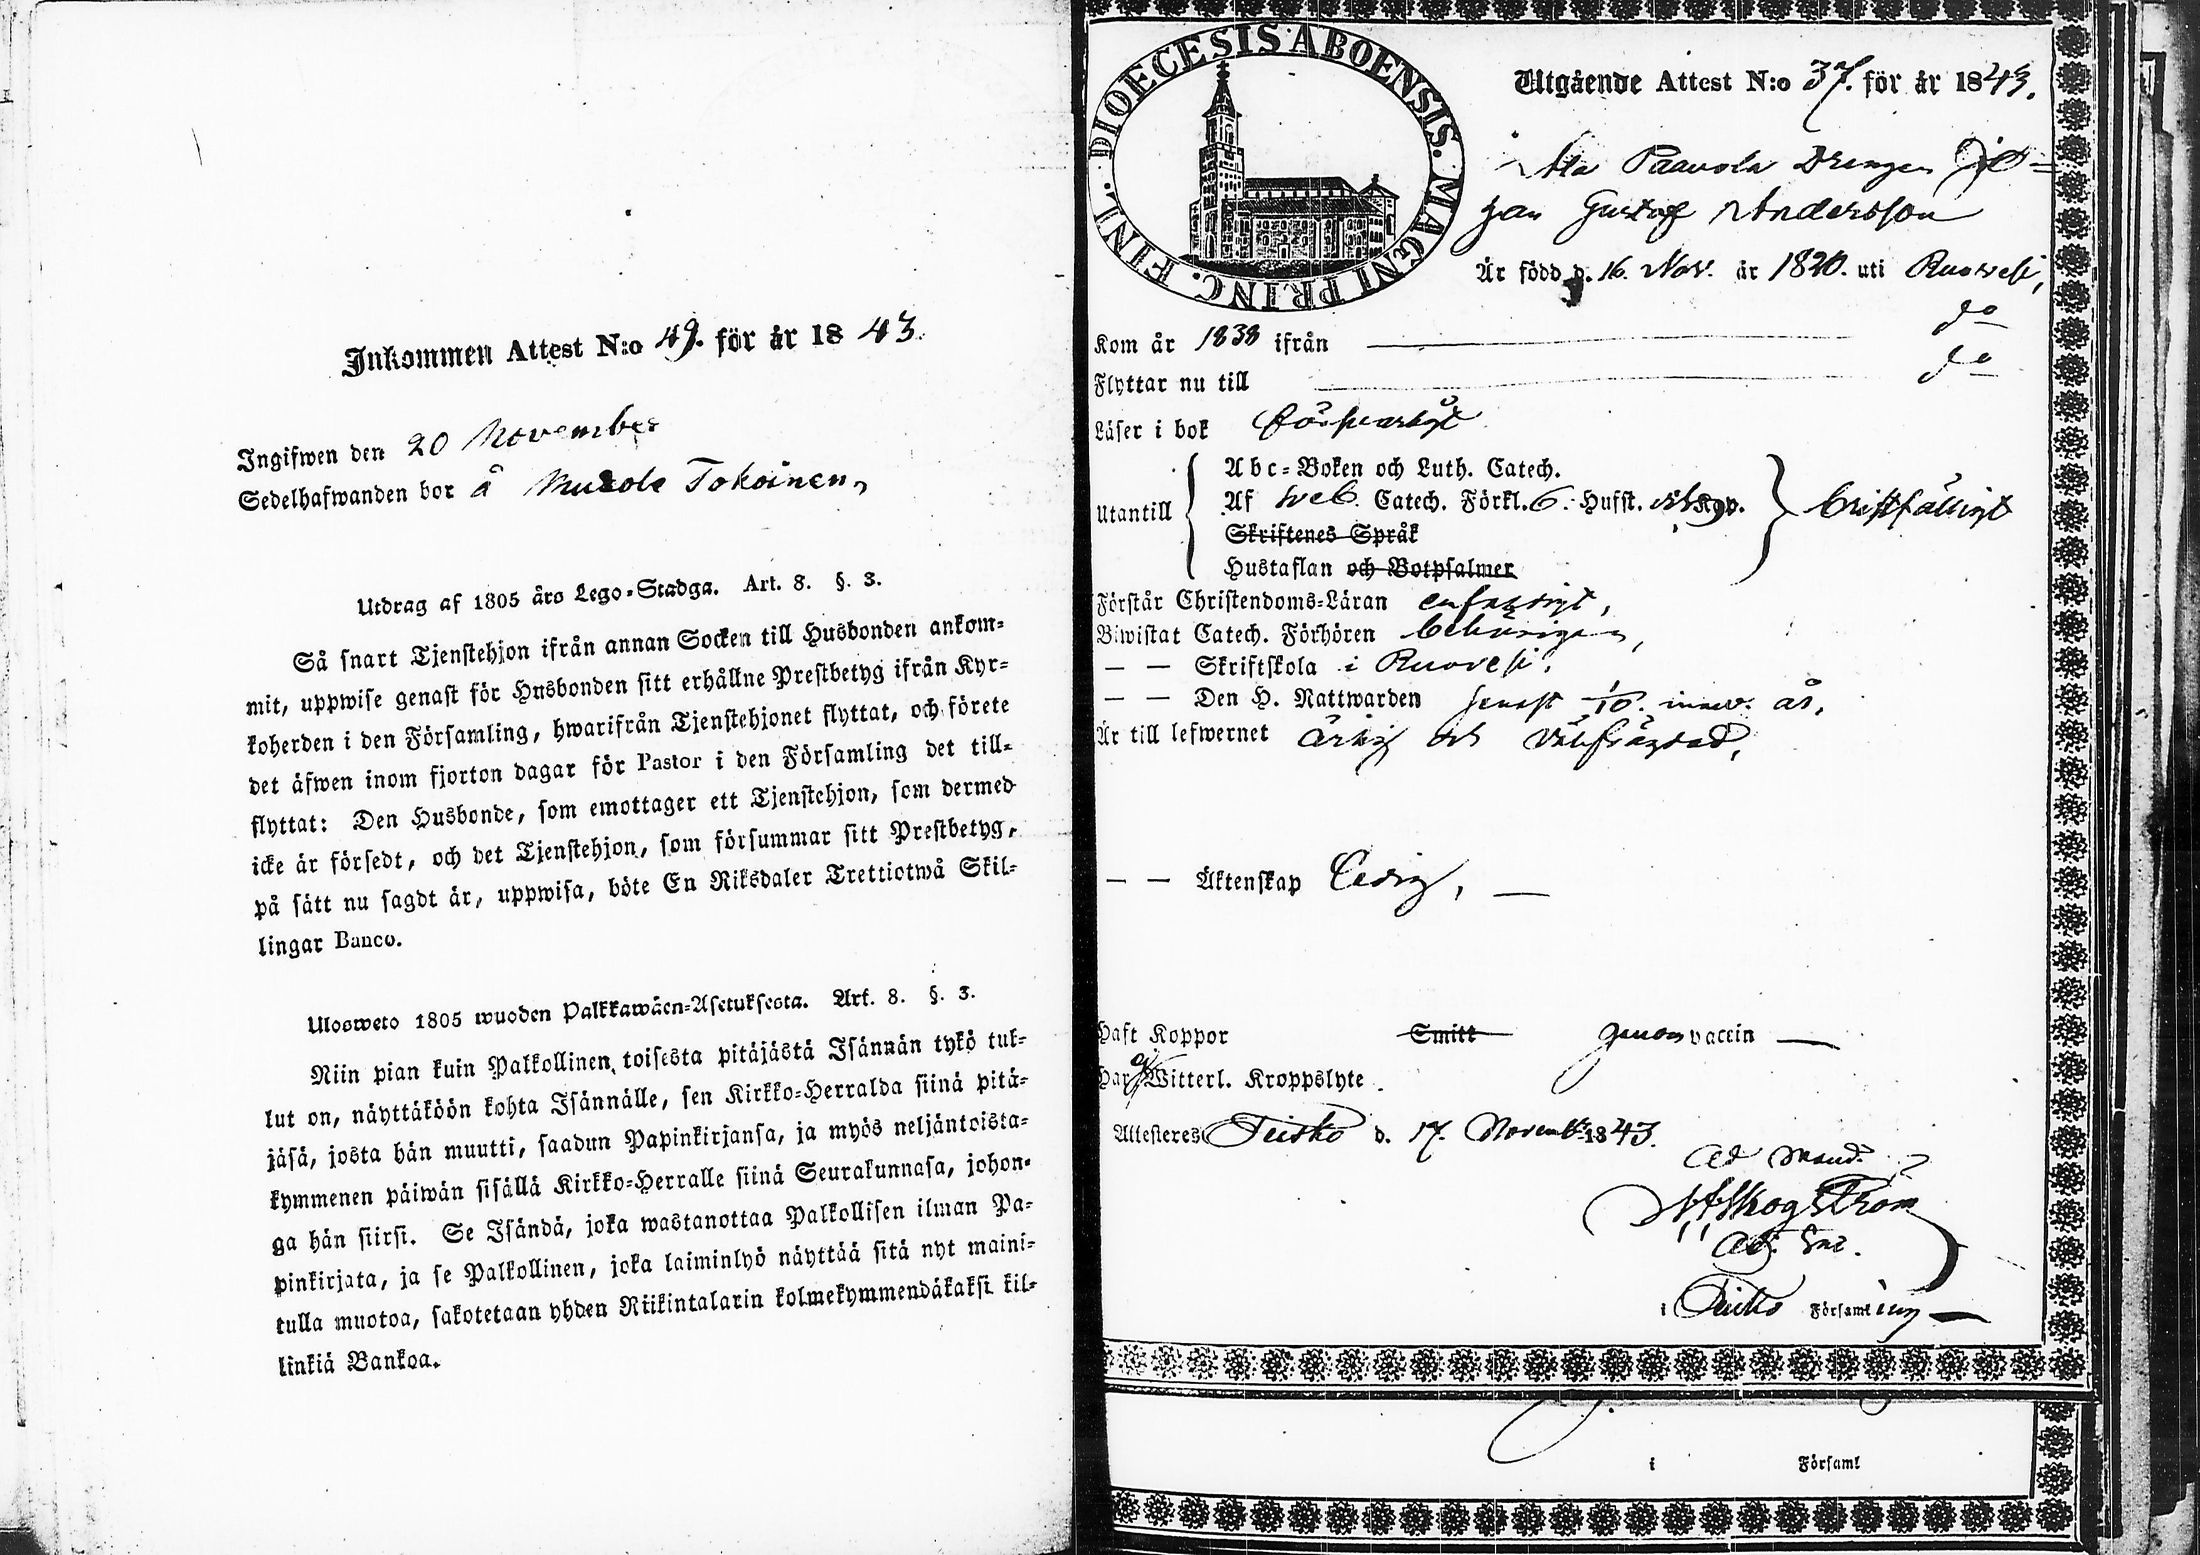 Inkommen Attest N:o 49. för år 1843.
Ingifwen den 20 November
Sedelhafwanden bor å Murole Tokoinen,
Utdrag af 1805 års Lego-Stadga. Art. 8. §. 3.
Så snart Tjenstehjon ifrån annan Socken till Husbonden ankom-
mit, uppwise genast för Husbonden sitt erhållne Prestbetyg ifrån Kyr-
koherden i den Församling, hwarifrån Tjenstehjonet flyttat, och förete
det äfwen inom fjorton dagar för Pastor i den Församling det till-
flyttat: Den Husbonde, som emottager ett Tjenstehjon, som dermed
icke är försedt, och det Tjenstehjon, som försummar sitt Prestbetyg,
på sätt nu sagdt är, uppwisa, böte En Riksdaler Trettiotwå Skil-
lingar Banco.
Ulosweto 1805 wuoden Palkkawäen-Asetuksesta. Art. 8. §. 3.
Niin pian kuin Palkollinen toisesta pitäjästä Isännän tykö tul-
lut on, näyttäköön kohta Isännälle, sen Kirkko-Herralda siinä pitä-
jäsä, josta hän muutti, saadun Papinkirjansa, ja myös neljäntoista-
kymmenen päiwän sisällä Kirkko-Herralle siinä Seurakunnasa, johon-
ga hän siirsi. Se Isändä, joka wastanottaa Palkollisen ilman Pa-
pinkirjata, ja se Palkollinen, joka laiminlyö näyttää sitä nyt maini-
tulla muotoa, sakotetaan yhden Riikintalarin kolmekymmendäkaksi kil-
linkiä Bankoa.
DIOECESIS ABOENSIS. MAGNI PRINC. FINL.
Utgående Attest N:o 37. för år 1843.
Paavola Drengen Jo-
han Gustaf Andersson
Är född d. 16. Nov. år 1820. uti Ruovesi,
Kom år 1838 ifrån do
Flyttar nu till do
Läser i bok försvarligt
Utantill
Abc-Boken och Luth. Catech.
Af Catech. Förkl. 6. Hufst.
Skriftenes Språk
Hustaflan och Botpsalmer
bristfälligt
Förstår Christendoms-Läran enfaldigt,
Biwistat Catech. Förhören behörigen,
— — Skriftskola i Ruovesi,
— — Den H. Nattwarden senast 1/10. innev. år,
Är till lefwernet ärlig och välfrägdad,
— — Äktenskap Ledig, —
Haft Koppor Smitt genom vaccin —
Har ej Witterl. Kroppslyte.
Attesteres Teisko d. 17. Novemb. 1843.
Ad Mand.
Skogström
Adj. Sac.
i Teisko Församling —
i Församl